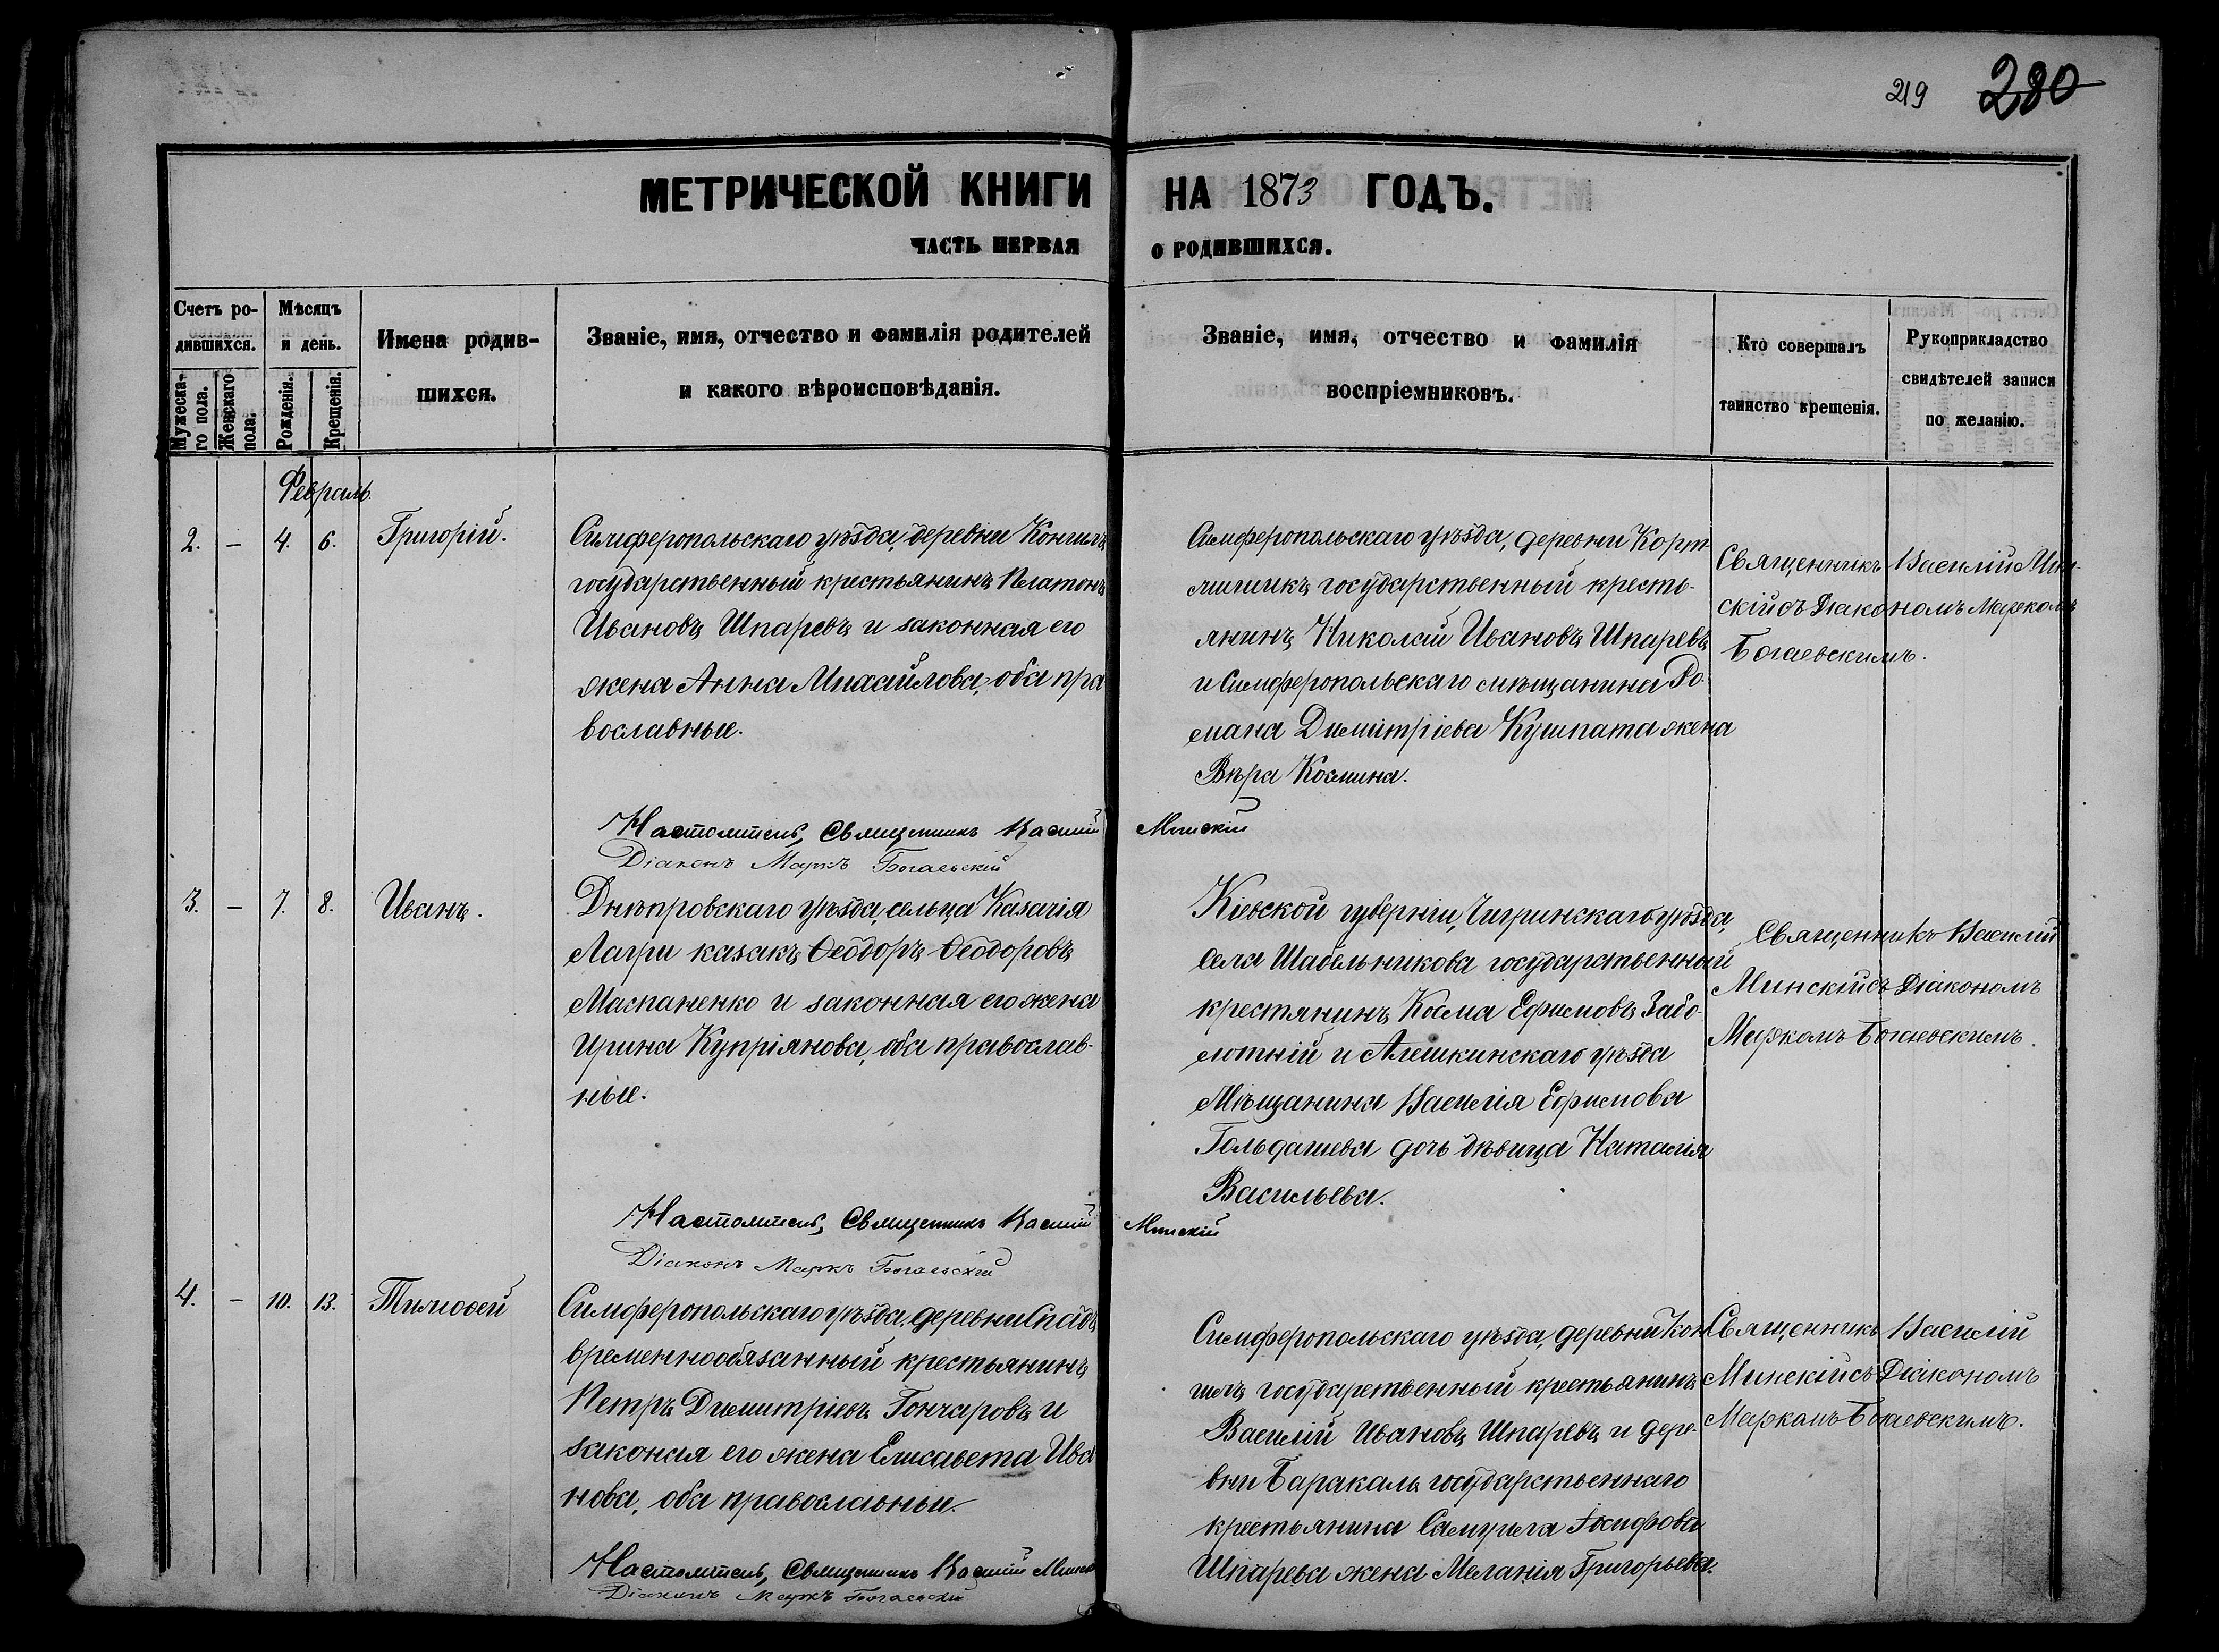 219 280
МЕТРИЧЕСКОЙ КНИГИ НА 1873 ГОДЪ.
ЧАСТЬ ПЕРВАЯ О РОДИВШИХСЯ.
Счетъ ро-
дившихся.
Мужеска-
го пола.
Женскаго
пола.
Мѣсяцъ
и день.
Рожденія.
Крещенія.
Имена родив-
шихся.
Званіе, имя, отчество и фамилія родителей
и какого вѣроисповѣданія.
Званіе, имя, отчество и фамилія
воспріемниковъ.
Кто совершалъ
таинство крещенія.
Рукоприкладство
свидѣтелей записи
по желанію.
Февраль.
2. – 4. 6. Григорій.
Симферопольскаго уѣзда, деревни Кончилъ
государственный крестьянинъ Платонъ
Ивановъ Шпаревъ и законная его
жена Анна Михайлова, оба пра
вославные.
Симферопольскаго уѣзда, деревни
государственный кресть-
янинъ Николай Ивановъ Шпаревъ
и Симферопольскаго мѣщанина Ро-
мана Димитріева Кушпата жена
Вѣра Космина.
Священникъ Василій Мин-
скій съ Діакономъ Маркомъ
Богаевскимъ.
Настоятель, Священникъ Василій Минскій
Діаконъ Маркъ Богаевскій
3. – 7. 8. Иванъ.
Днѣпровскаго уѣзда, сельца Казачія
Лагри казакъ Ѳеодоръ Ѳеодоровъ
Маспаненко и законная его жена
Ирина Купріянова, оба православ-
ные.
Кіевской губерніи, Чигринскаго уѣзда,
села Шабельникова государственный
крестянинъ Косма Ефимовъ Забо-
лотній и Алешкинскаго уѣзда
Мѣщанина Василія Ефимова
Гольдашева дочь дѣвица Наталія
Васильева.
Священникъ Василій
Минскій съ Діакономъ
Маркомъ Богаевскимъ.
Настоятель, Священникъ Василій Минскій
Діаконъ Маркъ Богаевскій
4. – 10. 13. Тимоѳей
Симферопольскаго уѣзда, деревни Спадъ
временнообязанный крестьянинъ
Петръ Димитріевъ Гончаровъ и
законая его жена Елисавета Ива
нова, оба православные.
Симферопольскаго уѣзда, деревни Кон
чилъ государственный крестьянинъ
Василій Ивановъ Шпаревъ и дере-
вни Баракалъ государственнаго
крестьянина Самуила Іосифова
Шпарева жена Меланія Григорьева.
Священникъ Василій
Минскій съ Діакономъ
Маркомъ Богаевскимъ.
Настоятель, Священникъ Василій Минскій
Діаконъ Маркъ Богаевскій